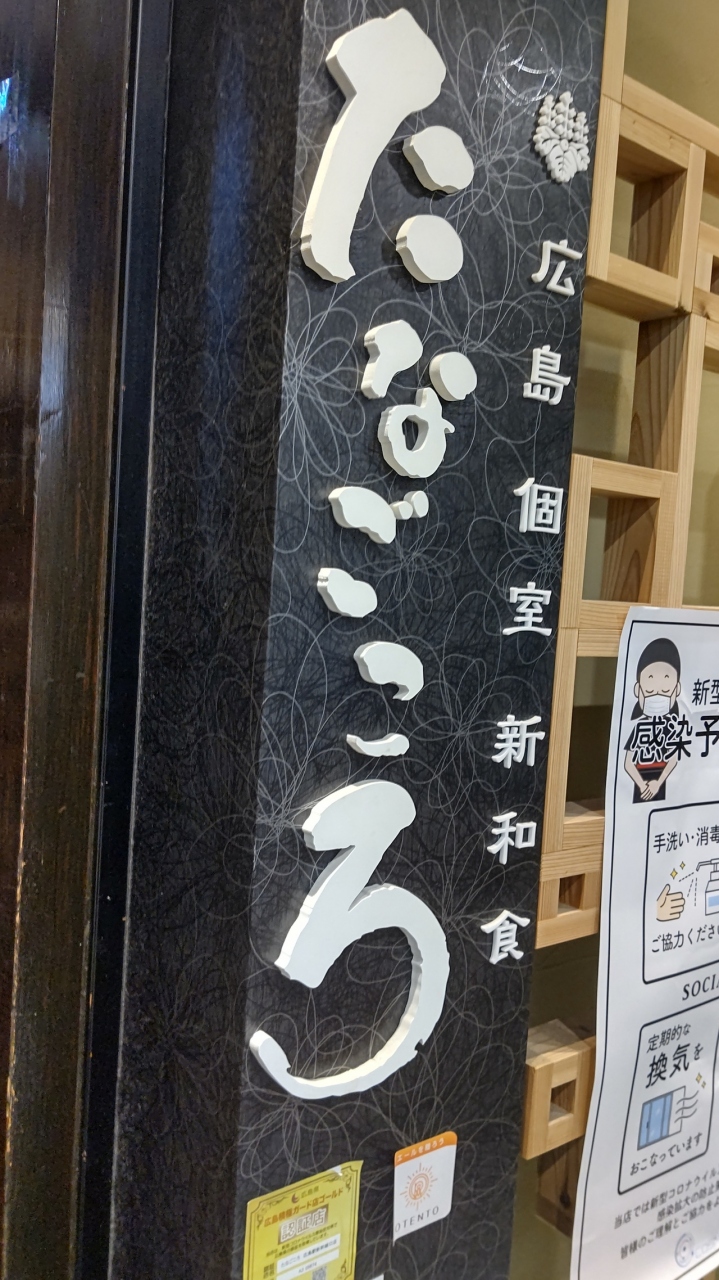 広島 個室 新和食
たなごころ
新型
感染予
手洗い・消毒
ご協力くださ
SOCIA
定期的な
換気を
おこなっています
当店では新型コロナウイル
感染拡大の防止
皆様のご理解とご協力を
エールを贈ろう
OTENTO
広島県
広島積極ガード店ゴールド
認証店